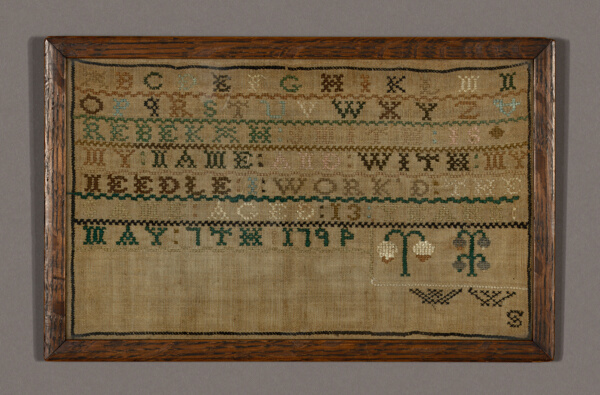 A B C D E F G H I K L M N
O P Q R S T U V W X Y Z
REBEKAH
MY:NAME: AND :WITH:MY
NEEDLE:I:WORK'D:
AGED:13
MAY:7TH:179
S